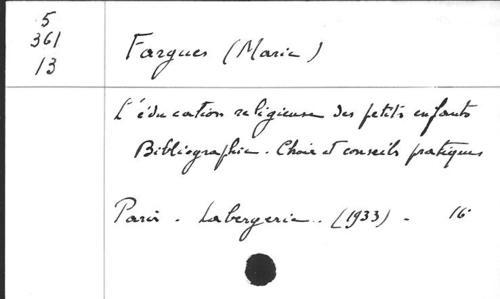 5
361
13
Fargues (Marie)
L'éducation religieuse des petits enfants
Bibliographie. Choix et conseils pratiques
Paris - Labergerie.. (1933) - 16°